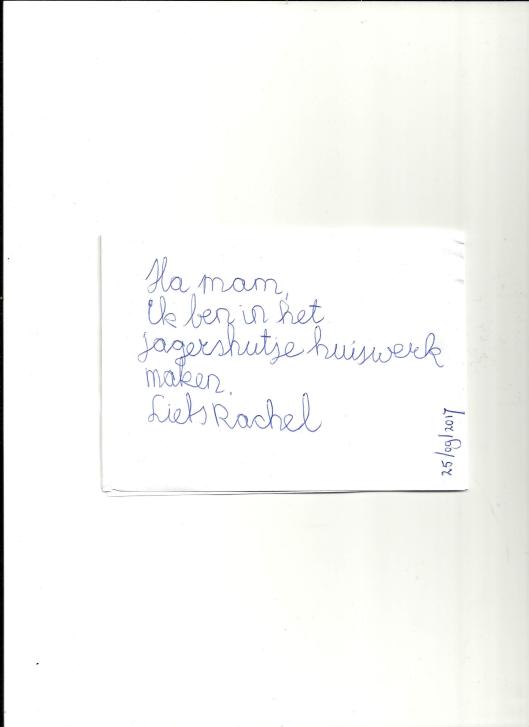 Ha mam,
Ik ben in het
jagershutje huiswerk
maken.
Liefs Rachel
25/09/2017